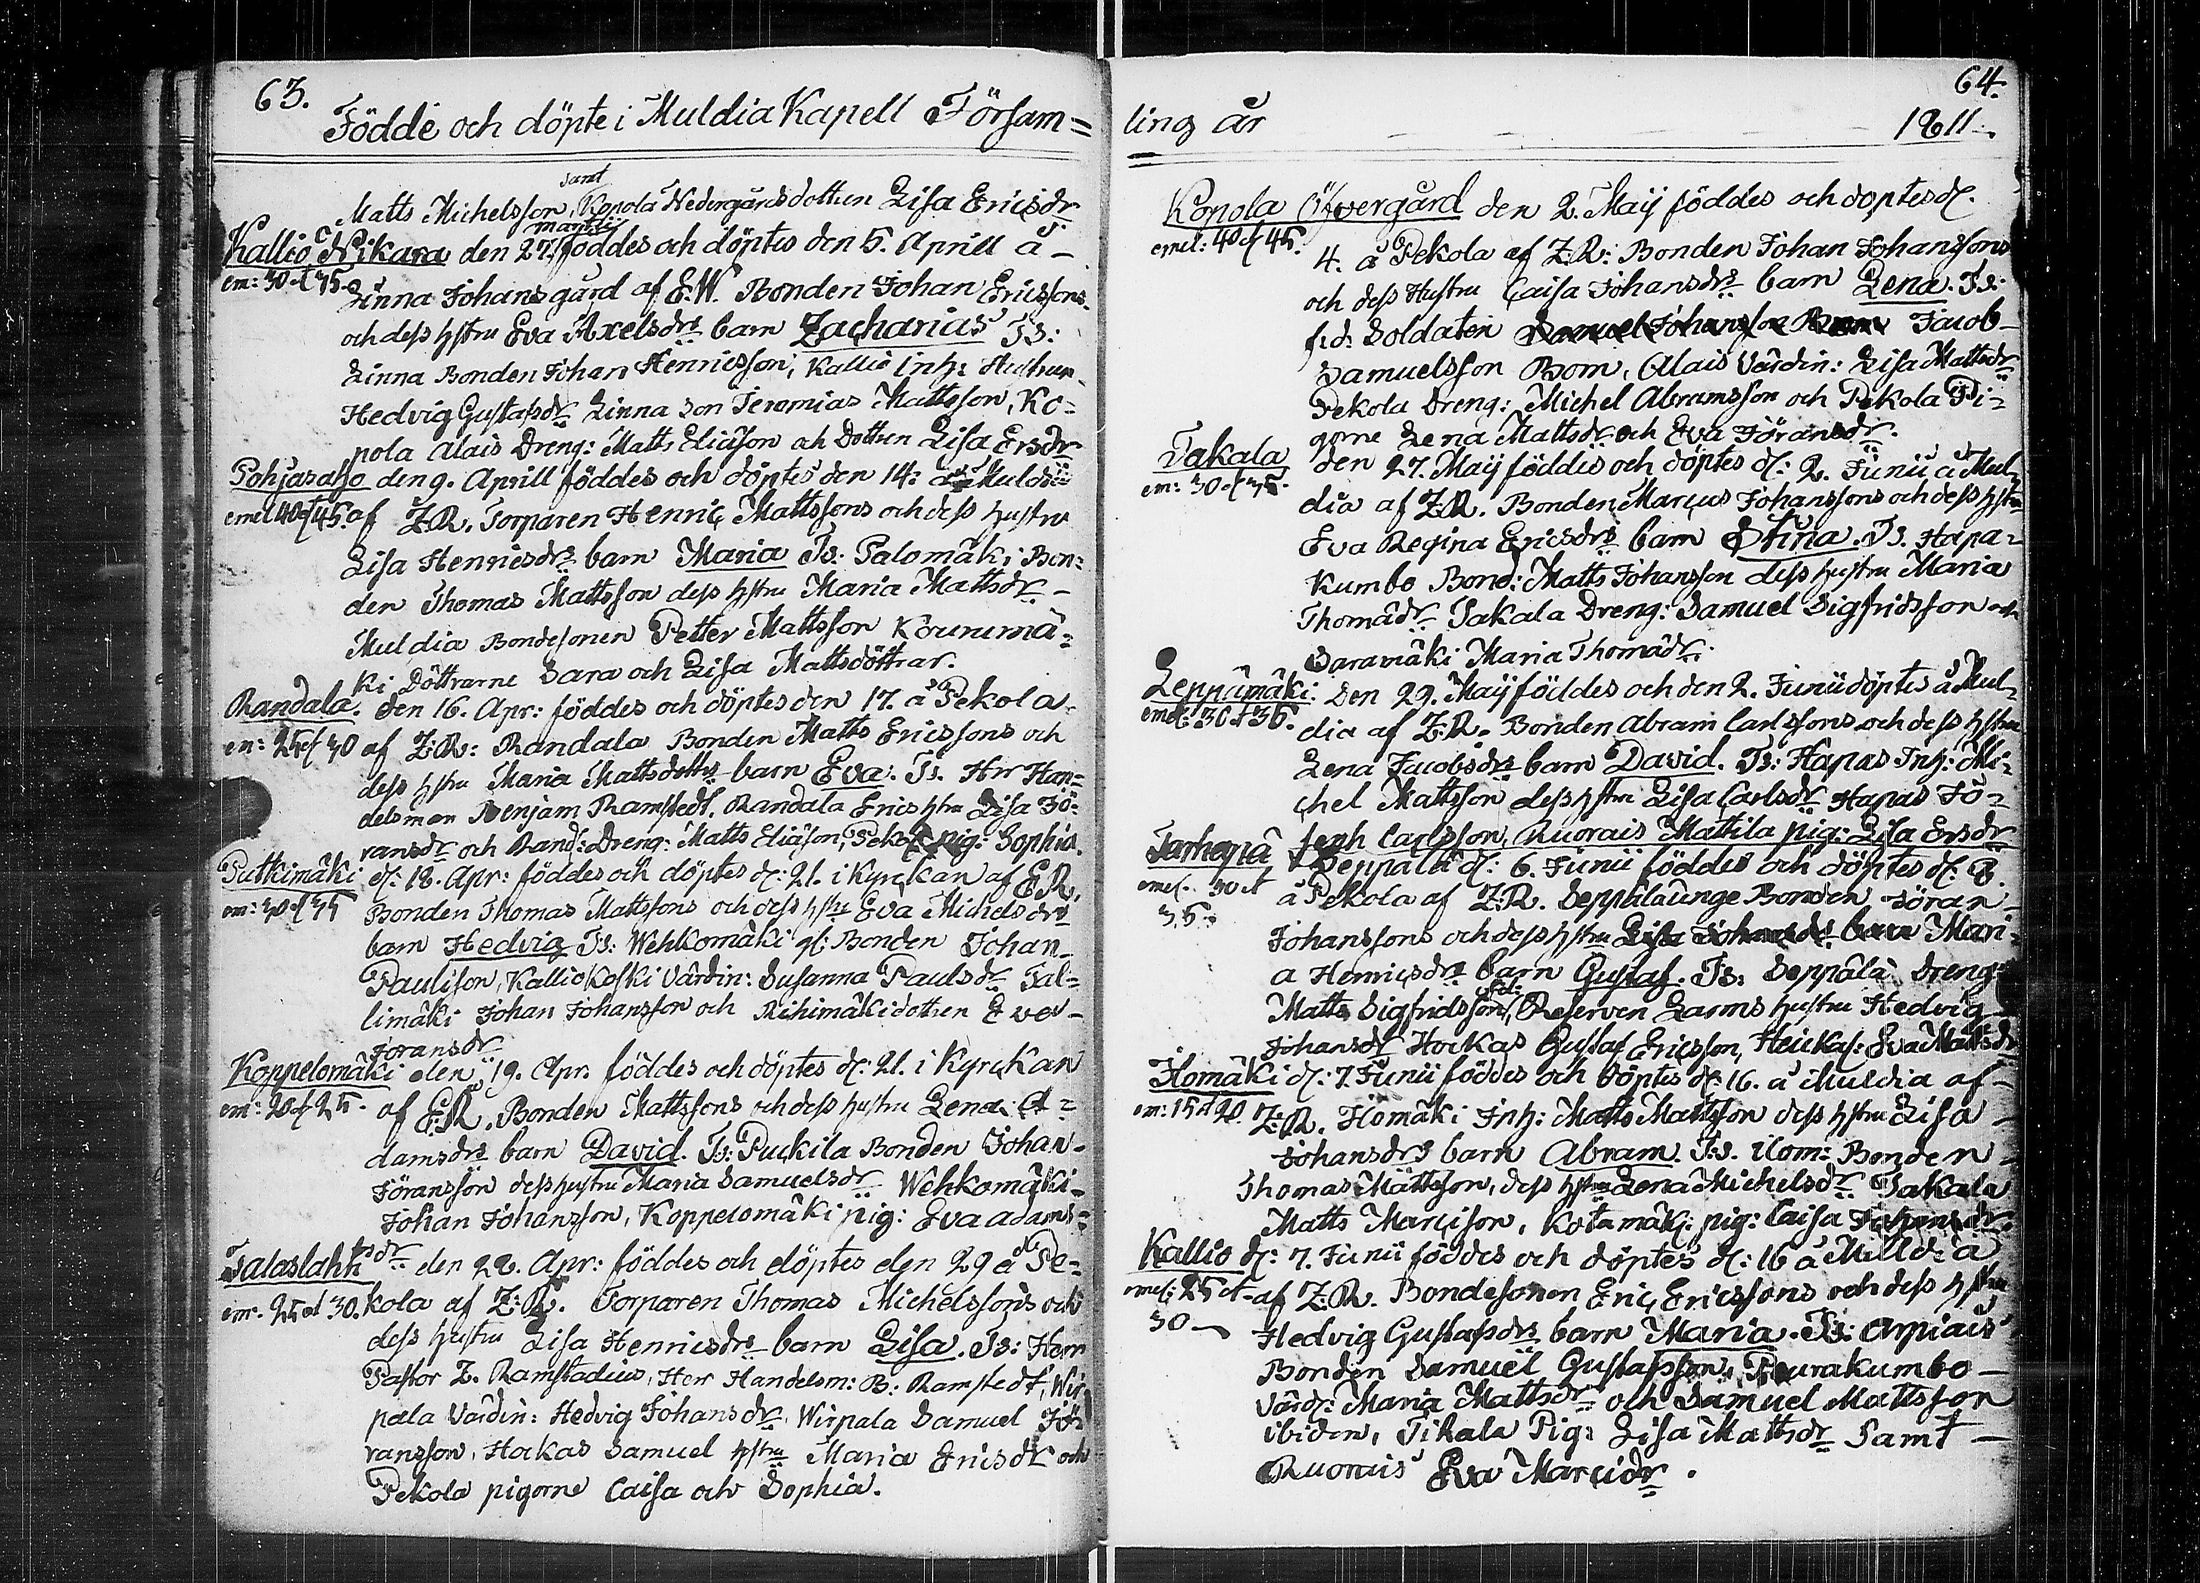 63.
Födde och döpte i Muldia Kapell Försam=
samt
Matts Michelsson, Konola Nedergårds dottren Lisa Ericsdr
martii
Kallio Nikara den 27. föddes och döptes den 5. Aprill å
em: 30 et 35. Linna Johans gård af E.W. Bonden Johan Ericssons
och dess hstru Eva Axelsdrs barn Zacharias Ts:
Linna Bonden Johan Henricsson, Kallio Inh: Hustrun
Hedvig Gustafsdr Linna Son Jeremias Mattsson, Ko=
nola Alais Dreng: Matts Eliäson och Dottren Lisa Ersdr
Pohjasaho den 9. Aprill föddes och döptes den 14: å Muldia
emel 40 et 45. af L.R. Torparen Henric Mattssons och dess hustru
Lisa Henricsdrs barn Maria Ts: Palomäki Bon=
den Thomas Mattsson dess hstru Maria Mattsdr
Muldia Bondesonen Petter Mattsson Kourumä=
ki Döttrarne Sara och Lisa Mattsdöttrar.
Randala. den 16. Apr: föddes och döptes den 17. å Pekola
em: 25 et 30 af L:R: Randala Bonden Matts Ericssons och
dess hstru Maria Mattsdotters barn Eva. Ts. Herr Han=
delsman Benjam Ramstedt, Randala Erics hstru Lisa Jö=
ransdr och Rand: Dreng: Matts Eliäson, Pekola pig: Sophia.
Putkimäki d: 18. Apr: föddes och döptes d: 21. i Kyrckan af E.R.
em: 30 et 35 Bonden Thomas Mattssons och dess hstru Eva Michelsdrs
barn Hedvig Ts: Wehkomäki gl: Bonden Johan
Paulison, Kalliokoski Värdin: Susanna Paulsdr Tal=
limäki Johan Johansson och Rihimäki dottren Eva
Joransdr
Koppelomäki den 19. Apr: föddes och döptes d: 21. i Kyrckan
em: 20 et 25. af E.R. Bonden Mattssons och dess hustru Lena A=
damsdrs barn David. Ts: Puckila Bonden Johan
Jöransson dess hustru Maria Samuelsdr Wehkomäki
Johan Johansson, Koppelomäki pig: Eva Adams=
dr
Salaslahti den 22. Apr: föddes och döptes den 29 å Pe=
em: 25 et 30. kola af L:R. Torparen Thomas Michelssons och
dess hustru Lisa Henricsdrs barn Lisa. Ts: Herr
Pastor Z. Ramstadius, Herr Handelsm: B: Ramstedt, Wir
pala Värdin: Hedvig Johansdr, Wirpala Samuel Jö
ransson, Hockas Samuel hstru Maria Ericsdr och
Pekola pigorne Caisa och Sophia.
64.
ling år 1811.
Konola Öfvergård den 2. Maij föddes och döptes d.
emel: 40 et 45. 4. å Pekola af L:R: Bonden Johan Johanssons
och dess Hustru Caisa Johansdrs barn Lena. Ts:
f.d. Soldaten Jacob
Samuelsson Bom, Alais Värdin: Lisa Mattsdr
Pekola Dreng: Michel Abramsson och Pekola Pi=
gorne Lena Mattsdr och Eva Jöransdr.
Takala den 27. Maij föddes och döptes d: 2. Junii å Mul
em: 30 et 35. dia af L:R. Bonden Marcus Johanssons och dess hstru
Eva Regina Ericsdrs barn Stina. Ts. Hapa=
kumbo Bond: Matts Johansson dess hustru Maria
Thomädr Takala Dreng: Samuel Sigfridsson och
Saramäki Maria Thomädr.
Leppämäki: den 29. Maij föddes och den 2. Junii döptes å Mul
emel: 30 et 35. dia af L:R. Bonden Abram Carlssons och dess hstru
Lena Jacobsdrs barn David. Ts: Hapas Inh: Mi=
chel Mattsson dess hstru Lisa Carlsdr Hapas Jo=
seph Carlsson, Ruorais Mattila pig: Lisa Ersdr
Tarhapiä Seppälä d: 6. Junii föddes och döptes d: 8.
emel. 30 et å Pekola af L:R. Seppälä unge Bonden Jöran
35. Johanssons och dess hstru Mari=
a Henricsdrs barn Gustaf. Ts: Seppälä Dreng:
Matts Sigfridsson, f.d: Reserven Larms hustru Hedvig
Johansdr Hockas Gustaf Ericsson, Heickas: Eva Mattsdr
Ilomäki d: 7. Junii föddes och döptes d: 16. å Muldia af
em: 15 et 20. L:R. Ilomäki Inh: Matts Mattsson dess hstru Lisa
Johansdrs barn Abram. Ts. Ilom: Bonden
Thomas Mattsson, dess hstru Lena Michelsdr Takala
Matts Marcison, Kotamäki pig: Caisa Johansdr.
Kallio d: 7. Junii föddes och döptes d: 16 å Mulldia
emel: 25 et af L:R. Bondesonen Eric Ericssons och dess hstru
30 Hedvig Gustafsdrs barn Maria. Ts: Arpiais
Bonden Samuel Gustafsson, Peurakumbo
värd: Maria Mattsdr och Samuel Mattsson
ibidem, Tikala Pig: Lisa Mattsdr Samt
Ruorais Eva Marcidr.